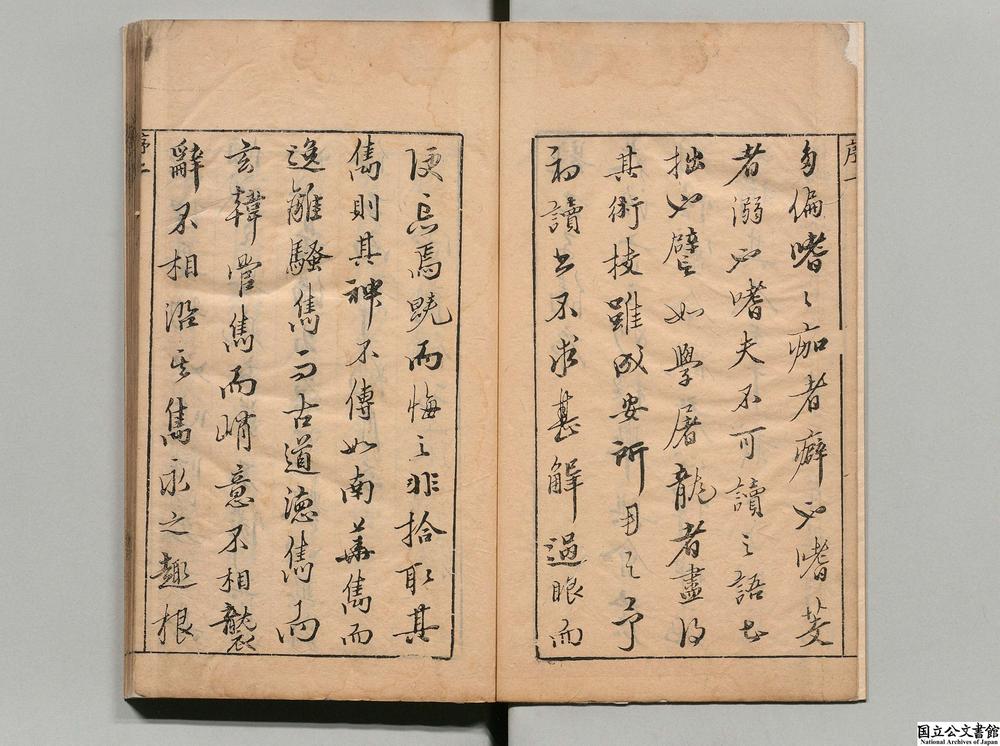 序一
自偏嗜〻痂者癖必嗜芰
者溺必嗜夫不可讀之語也
拙必譬如學屠龍者盡得
其術技雖成安所用之予
初讀書不求甚解過眼而
便忘焉既而悔之非拾取其
雋則其神不傳如南華雋而
逸離騷雋而古道德雋而
玄韓管雋而峭意不相襲
辭不相沿其雋永之趣根
序二
国立公文書館
National Archives of Japan